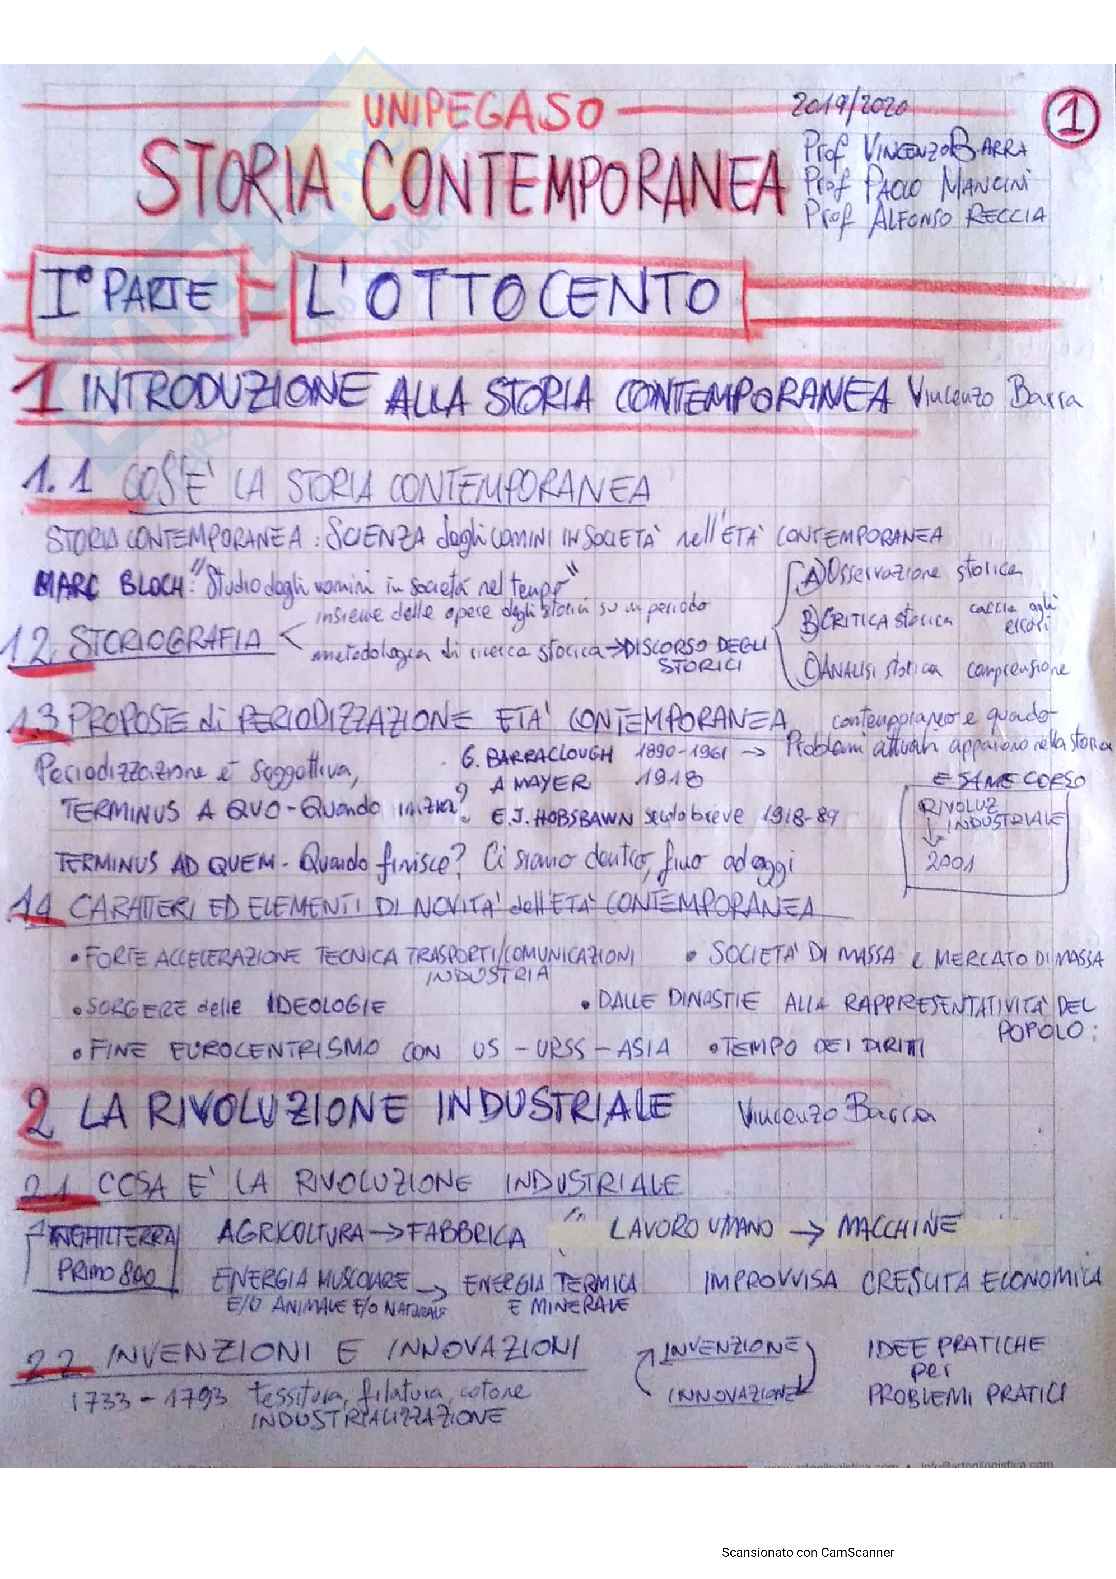 UNIPEGASO 2019/2020 1
STORIA CONTEMPORANEA
Prof VINCENZO BARRA
Prof PAOLO MANCINI
Prof ALFONSO RECCIA
I° PARTE - L'OTTOCENTO
1 INTRODUZIONE ALLA STORIA CONTEMPORANEA Vincenzo Barra
1.1 COS'E' LA STORIA CONTEMPORANEA
STORIA CONTEMPORANEA: SCIENZA degli UOMINI IN SOCIETA' nell'ETA' CONTEMPORANEA
MARC BLOCH: "Studio degli uomini in società nel tempo"
1.2 STORIOGRAFIA
insieme delle opere degli storici su un periodo
metodologia di ricerca storica → DISCORSO DEGLI STORICI
A) Osservazione storica
B) CRITICA storica caccia agli errori
C) ANALISI storica comprensione
1.3 PROPOSTE di PERIODIZZAZIONE ETA' CONTEMPORANEA
Periodizzazione è soggettiva,
G. BARRACLOUGH 1890-1961 → contemporaneo è quando Problemi attuali appaiono nella storia
A MAYER 1918
TERMINUS A QUO - Quando inizia? E.J. HOBSBAWN secolo breve 1918-89
TERMINUS AD QUEM - Quando finisce? Ci siamo dentro, fino ad oggi
ESAME CORSO
RIVOLUZ INDUSTRIALE
↓
2001
1.4 CARATTERI ED ELEMENTI DI NOVITA' dell'ETA' CONTEMPORANEA
• FORTE ACCELERAZIONE TECNICA TRASPORTI/COMUNICAZIONI INDUSTRIA
• SOCIETA' DI MASSA e MERCATO DI MASSA
• SORGERE delle IDEOLOGIE
• DALLE DINASTIE ALLA RAPPRESENTATIVITA' DEL POPOLO:
• FINE EUROCENTRISMO CON US - URSS - ASIA • TEMPO DEI DIRITTI
2 LA RIVOLUZIONE INDUSTRIALE Vincenzo Barra
2.1 COSA E' LA RIVOLUZIONE INDUSTRIALE
INGHILTERRA PRIMO 800
AGRICOLTURA → FABBRICA LAVORO UMANO → MACCHINE
ENERGIA MUSCOLARE E/O ANIMALE E/O NATURALE → ENERGIA TERMICA E MINERALE
IMPROVVISA CRESCITA ECONOMICA
2.2 INVENZIONI E INNOVAZIONI
1733 - 1793 tessitura, filatura, cotone
INDUSTRIALIZZAZIONE
INVENZIONE
INNOVAZIONE
IDEE PRATICHE
per
PROBLEMI PRATICI
Scansionato con CamScanner